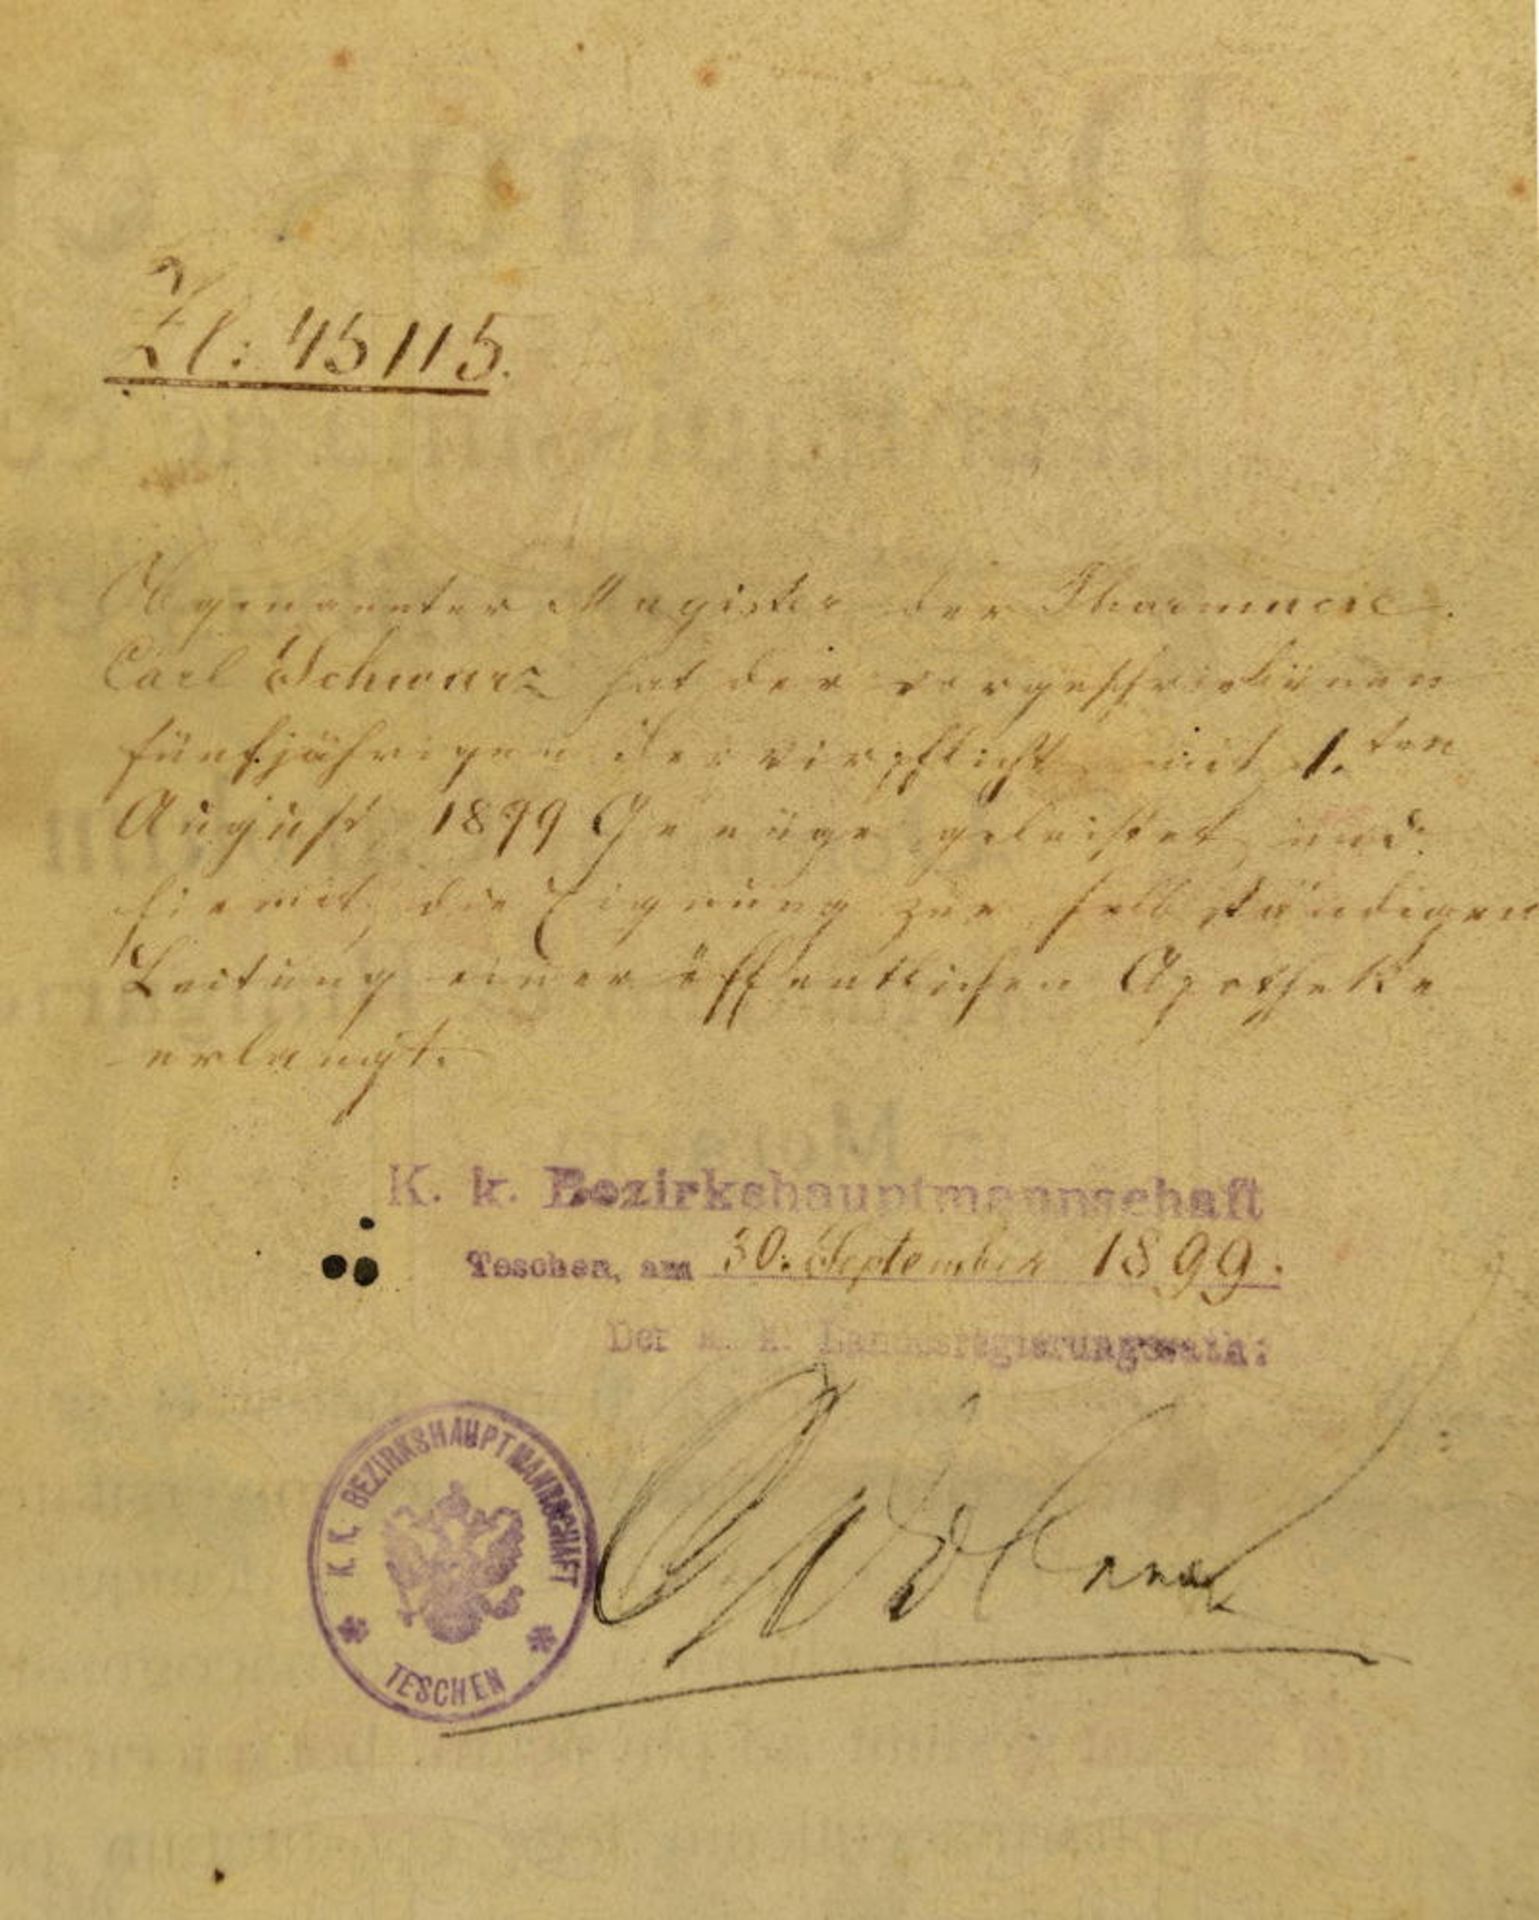 Zl: 45115.
Obgenannter Magister der Pharmacie
Carl Schwarz hat der vorgeschriebenen
fünfjährigen Servirpflicht mit 1.ten
August 1899 Genüge geleistet und
hiemit die Eignung zur selbständigen
Leitung einer öffentlichen Apotheke
erlangt.
K. k. Bezirkshauptmannschaft
Teschen, am 30. September 1899.
Der k. k. Landesregierungsrath:
K. K. BEZIRKSHAUPTMANNSCHAFT
TESCHEN